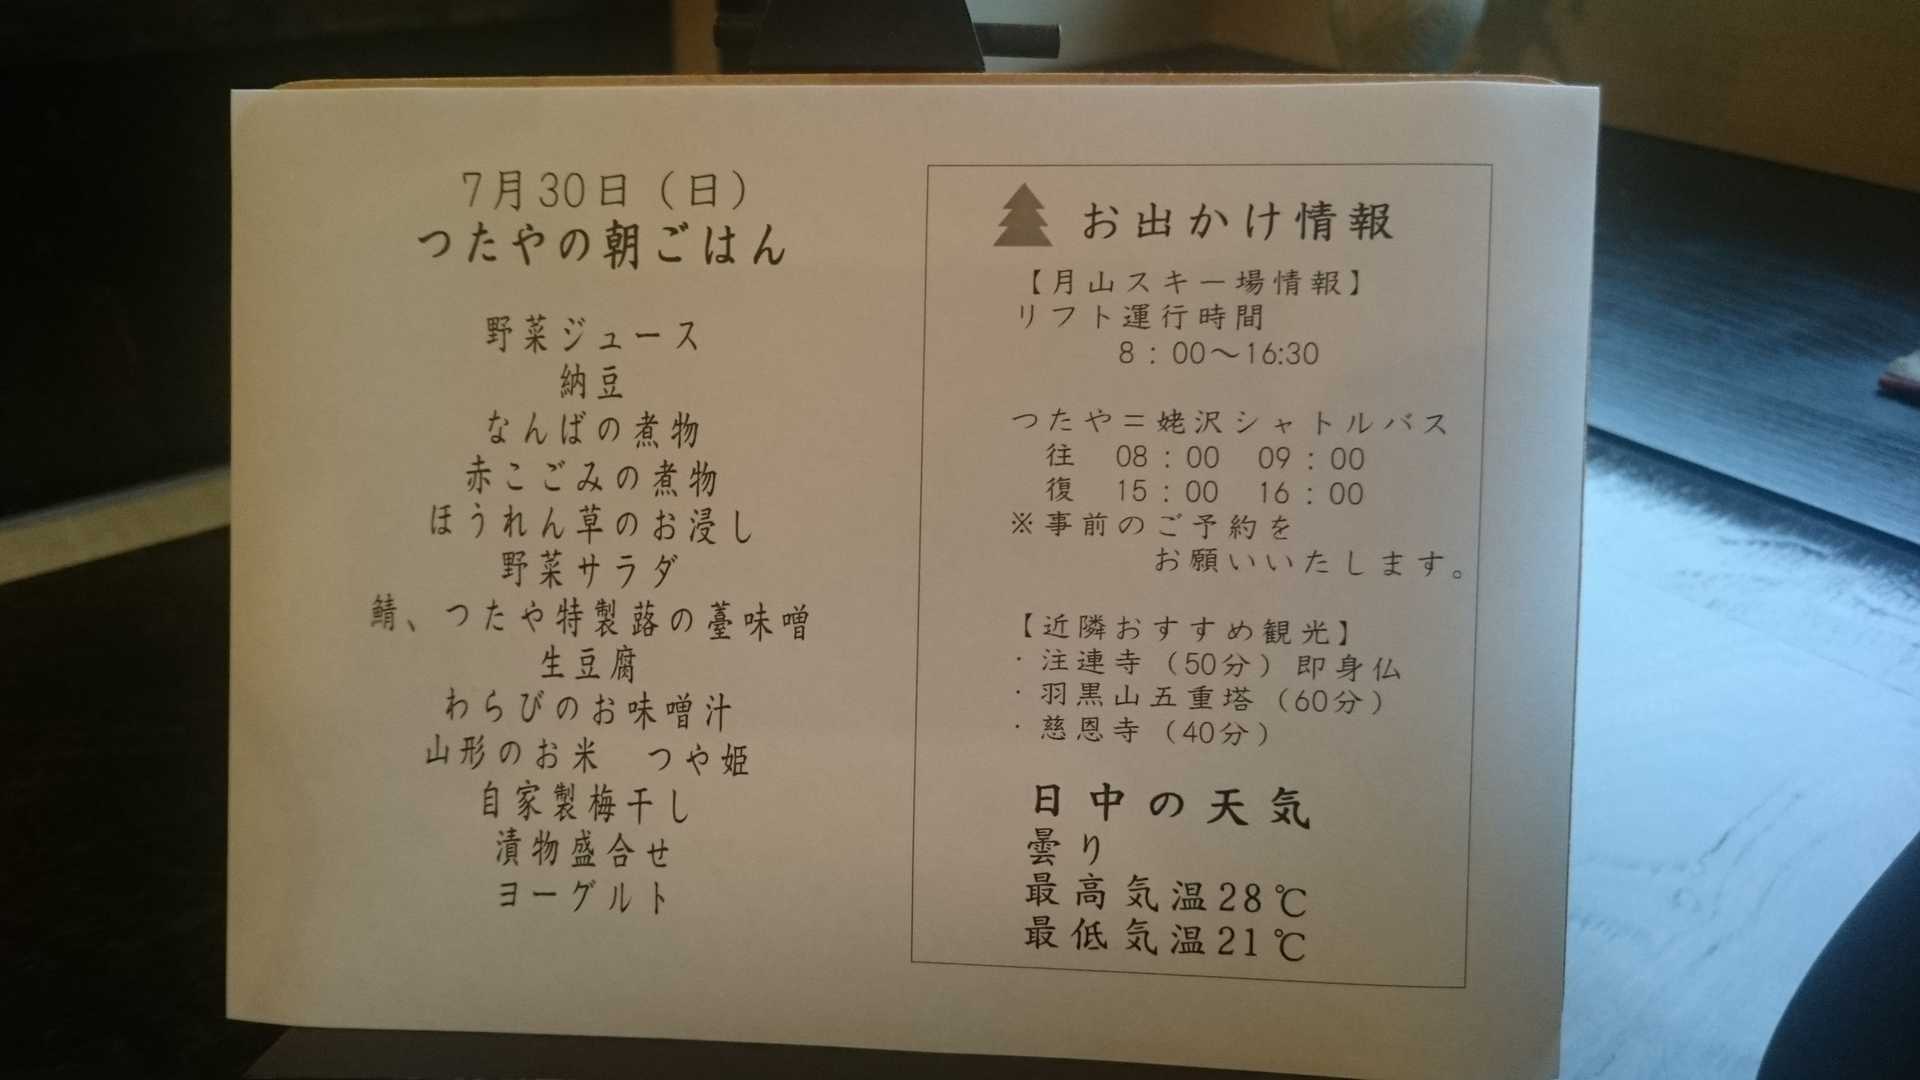 7月30日（日）
つたやの朝ごはん
野菜ジュース
納豆
なんばの煮物
赤こごみの煮物
ほうれん草のお浸し
野菜サラダ
鯖、つたや特製蕗の薹味噌
生豆腐
わらびのお味噌汁
山形のお米　つや姫
自家製梅干し
漬物盛合せ
ヨーグルト
お出かけ情報
【月山スキー場情報】
リフト運行時間
8：00～16:30
つたや＝姥沢シャトルバス
往　08：00　09：00
復　15：00　16：00
※事前のご予約を
お願いいたします。
【近隣おすすめ観光】
・注連寺（50分）即身仏
・羽黒山五重塔（60分）
・慈恩寺（40分）
日中の天気
曇り
最高気温28℃
最低気温21℃